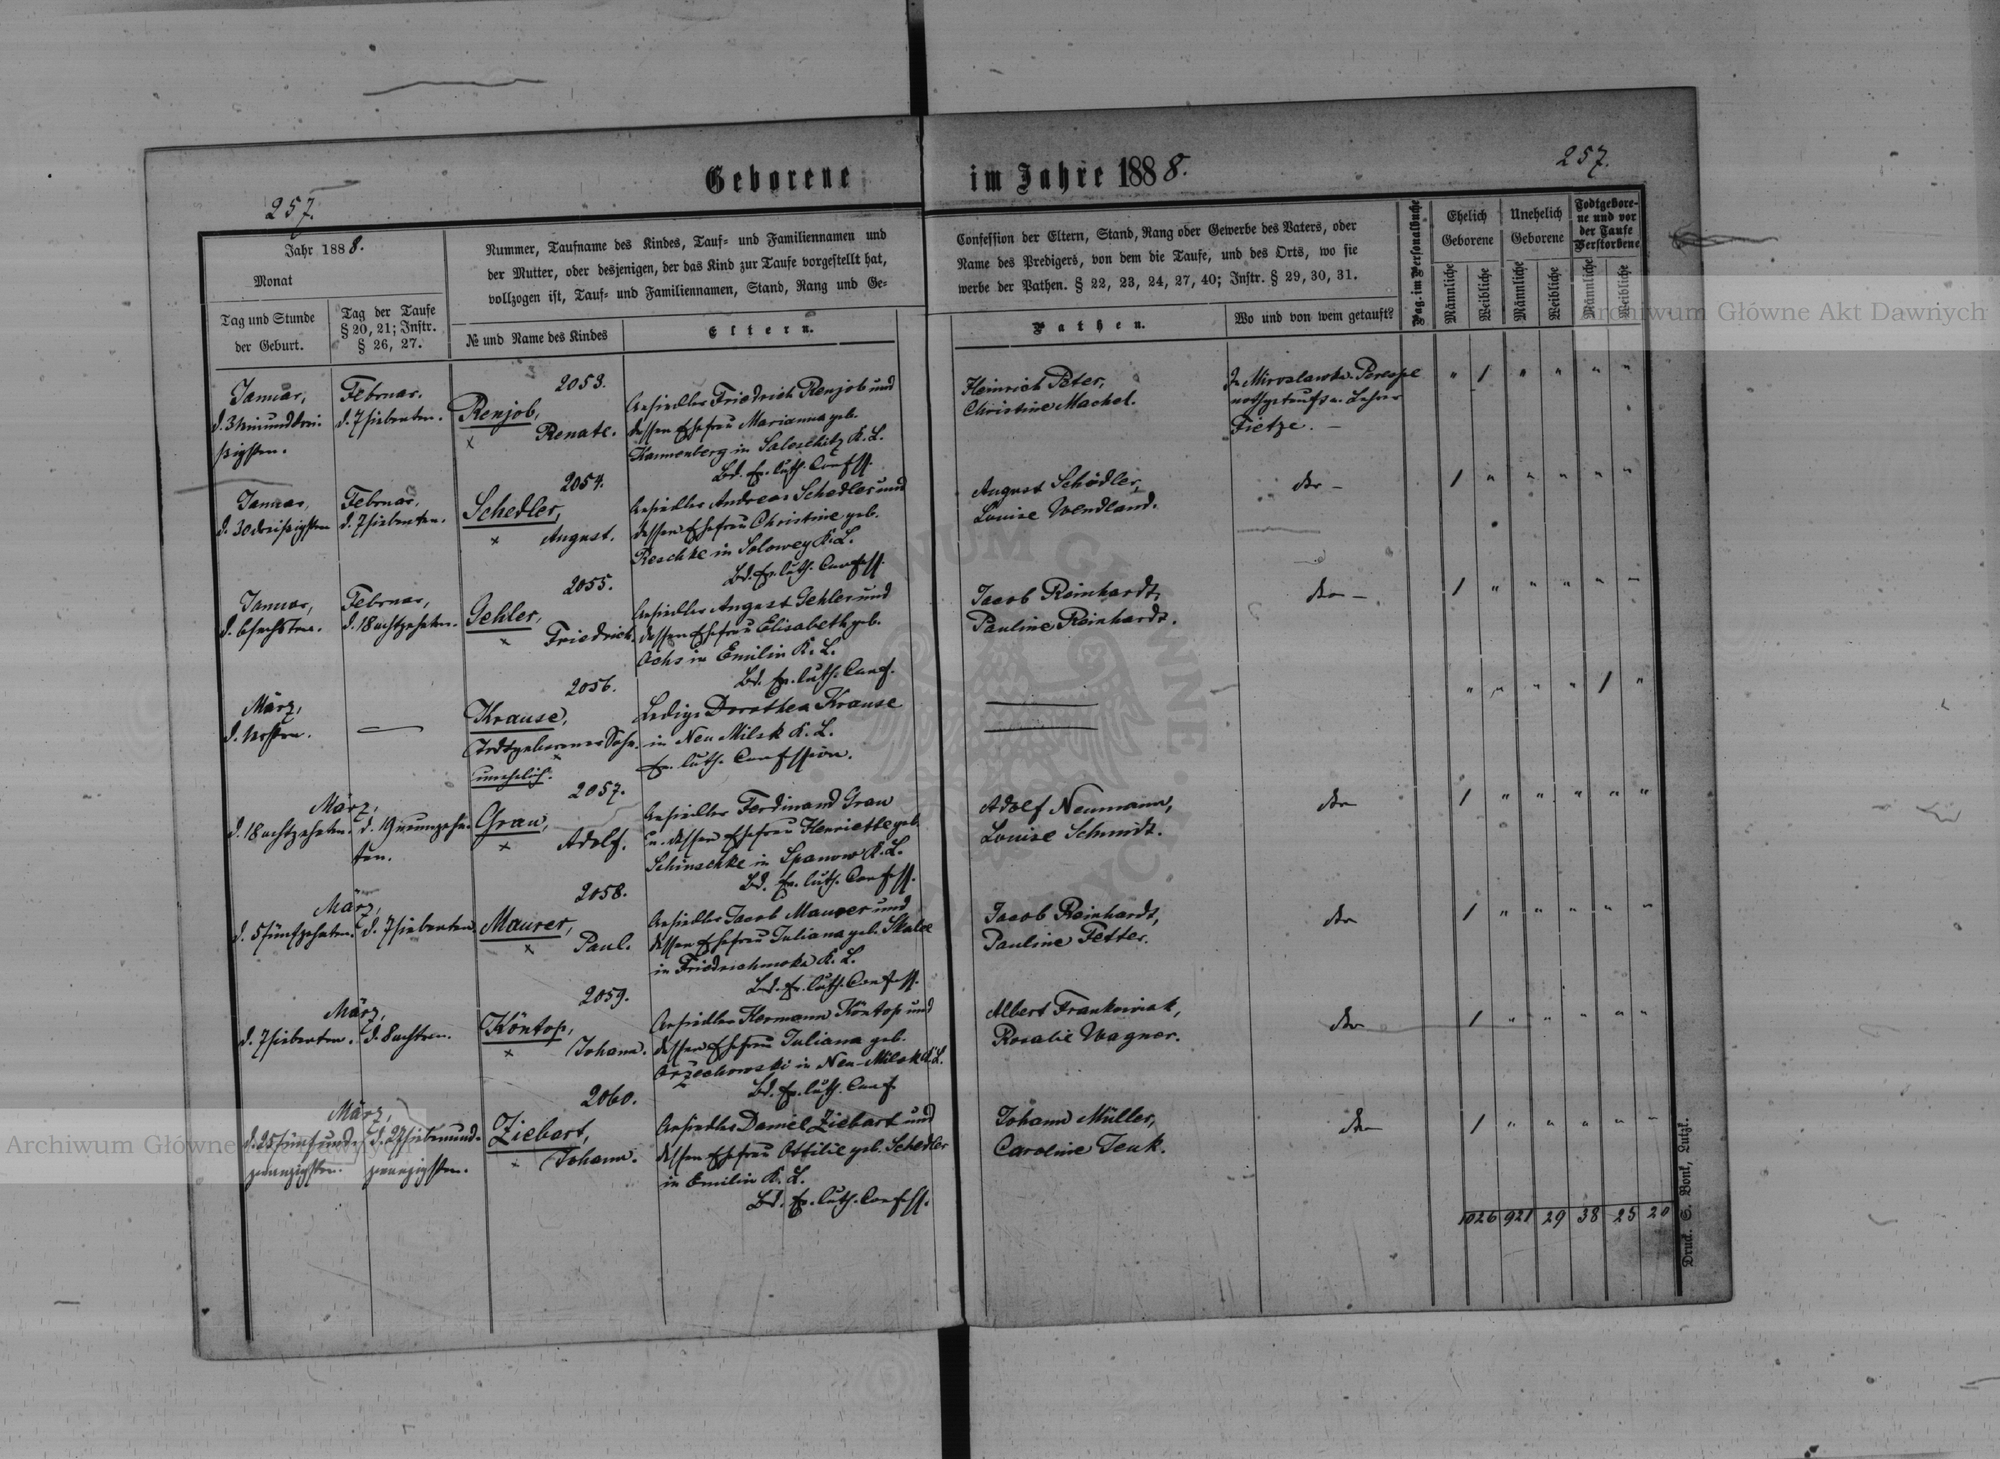 Geborene im Jahre 1888.
257.
257.
Jahr 1888.
Monat
Tag und Stunde
der Geburt.
Tag der Taufe
§ 20, 21; Instr.
§ 26, 27.
Nummer, Taufname des Kindes, Tauf- und Familiennamen und
der Mutter, oder desjenigen, der das Kind zur Taufe vorgestellt hat,
vollzogen ist, Tauf- und Familiennamen, Stand, Rang und Ge-
№ und Name des Kindes
Eltern.
Confession der Eltern, Stand, Rang oder Gewerbe des Vaters, oder
Name des Predigers, von dem die Taufe, und des Orts, wo sie
werbe der Pathen. § 22, 23, 24, 27, 40; Instr. § 29, 30, 31.
Pathen.
Wo und von wem getauft?
Pag. im Personalbuche
Ehelich
Geborene
Unehelich
Geborene
Todtgebore-
ne und vor
der Taufe
Verstorbene
Männliche
Weibliche
Männliche
Weibliche
Männliche
Weibliche
Januar,
d. 31 einunddrei-
ßigsten.
Februar.
d. 7 siebenten.
2053.
Renjob,
× Renate.
Ansiedler Friedrich Renjob und
dessen Ehefrau Marianna geb.
Kannenberg in K. L.
Bd. Ev. luth. Confess.
Heinrich Peter,
Christine Machel.
In
nothgetauft v. Lehrer
Tietze. –
" 1 " " " "
Januar,
d. 30 dreißigsten
Februar,
d. 7 siebenten.
2054.
Schedler,
× August.
Ansiedler Andreas Schedler und
dessen Ehefrau Christine geb.
Reschke in Solowey K. L.
Bd. Ev. luth. Confess.
August Schödler,
Louise Wendland.
do –
1 " " " " "
Januar,
d. 6 sechsten.
Februar,
d. 18 achtzehnten.
2055.
Gehler,
× Friedrich.
Ansiedler August Gehler und
dessen Ehefrau Elisabeth geb.
Ochs in Emilin K. L.
Bd. Ev. luth. Conf.
Jacob Reinhardt,
Pauline Reinhardt.
do –
1 " " " " "
März,
d. 1 ersten.
—
2056.
Krause,
Todtgeborener Sohn.
×
unehelich.
Ledige Dorothea Krause
in Neu Milsk K. L.
Ev. luth. Confession.
" " " " 1 "
März,
d. 18 achtzehnten.
d. 19 neunzehn-
ten.
2057.
Grau,
× Adolf.
Ansiedler Ferdinand Grau
u. dessen Ehefrau Henriette geb.
Schinschke in Spanow K. L.
Bd. Ev. luth. Confess.
Adolf Neumann,
Louise Schmidt.
do
1 " " " " "
März,
d. 5 fünfzehnten.
d. 7 siebenten.
2058.
Maurer,
× Paul.
Ansiedler Jacob Maurer und
dessen Ehefrau Juliana geb.
in K. L.
Bd. Ev. luth. Confess.
Jacob Reinhardt,
Pauline Fetter.
do
1 " " " " "
März,
d. 7 siebenten.
d. 8 achten.
2059.
Köntop,
× Johann.
Ansiedler Hermann Köntop und
dessen Ehefrau Juliana geb.
Orzechowski in Neu-Milsk K. L.
Bd. Ev. luth. Conf.
Albert Frankowiak,
Rosalie Wagner.
do
1 " " " " "
März,
d. 25 fünfund-
zwanzigsten.
d. 27 siebenund-
zwanzigsten.
2060.
Ziebart,
× Johann.
Ansiedler Daniel Ziebart und
dessen Ehefrau Ottilie geb. Schedler
in Emilin K. L.
Bd. Ev. luth. Confess.
Johann Müller,
Caroline Jeuk.
do
1 " " " " "
1026 921 29 38 25 20
Druck. S. Bonk, Lutzk.
Archiwum Główne Akt Dawnych
Archiwum Główne Akt Dawnych